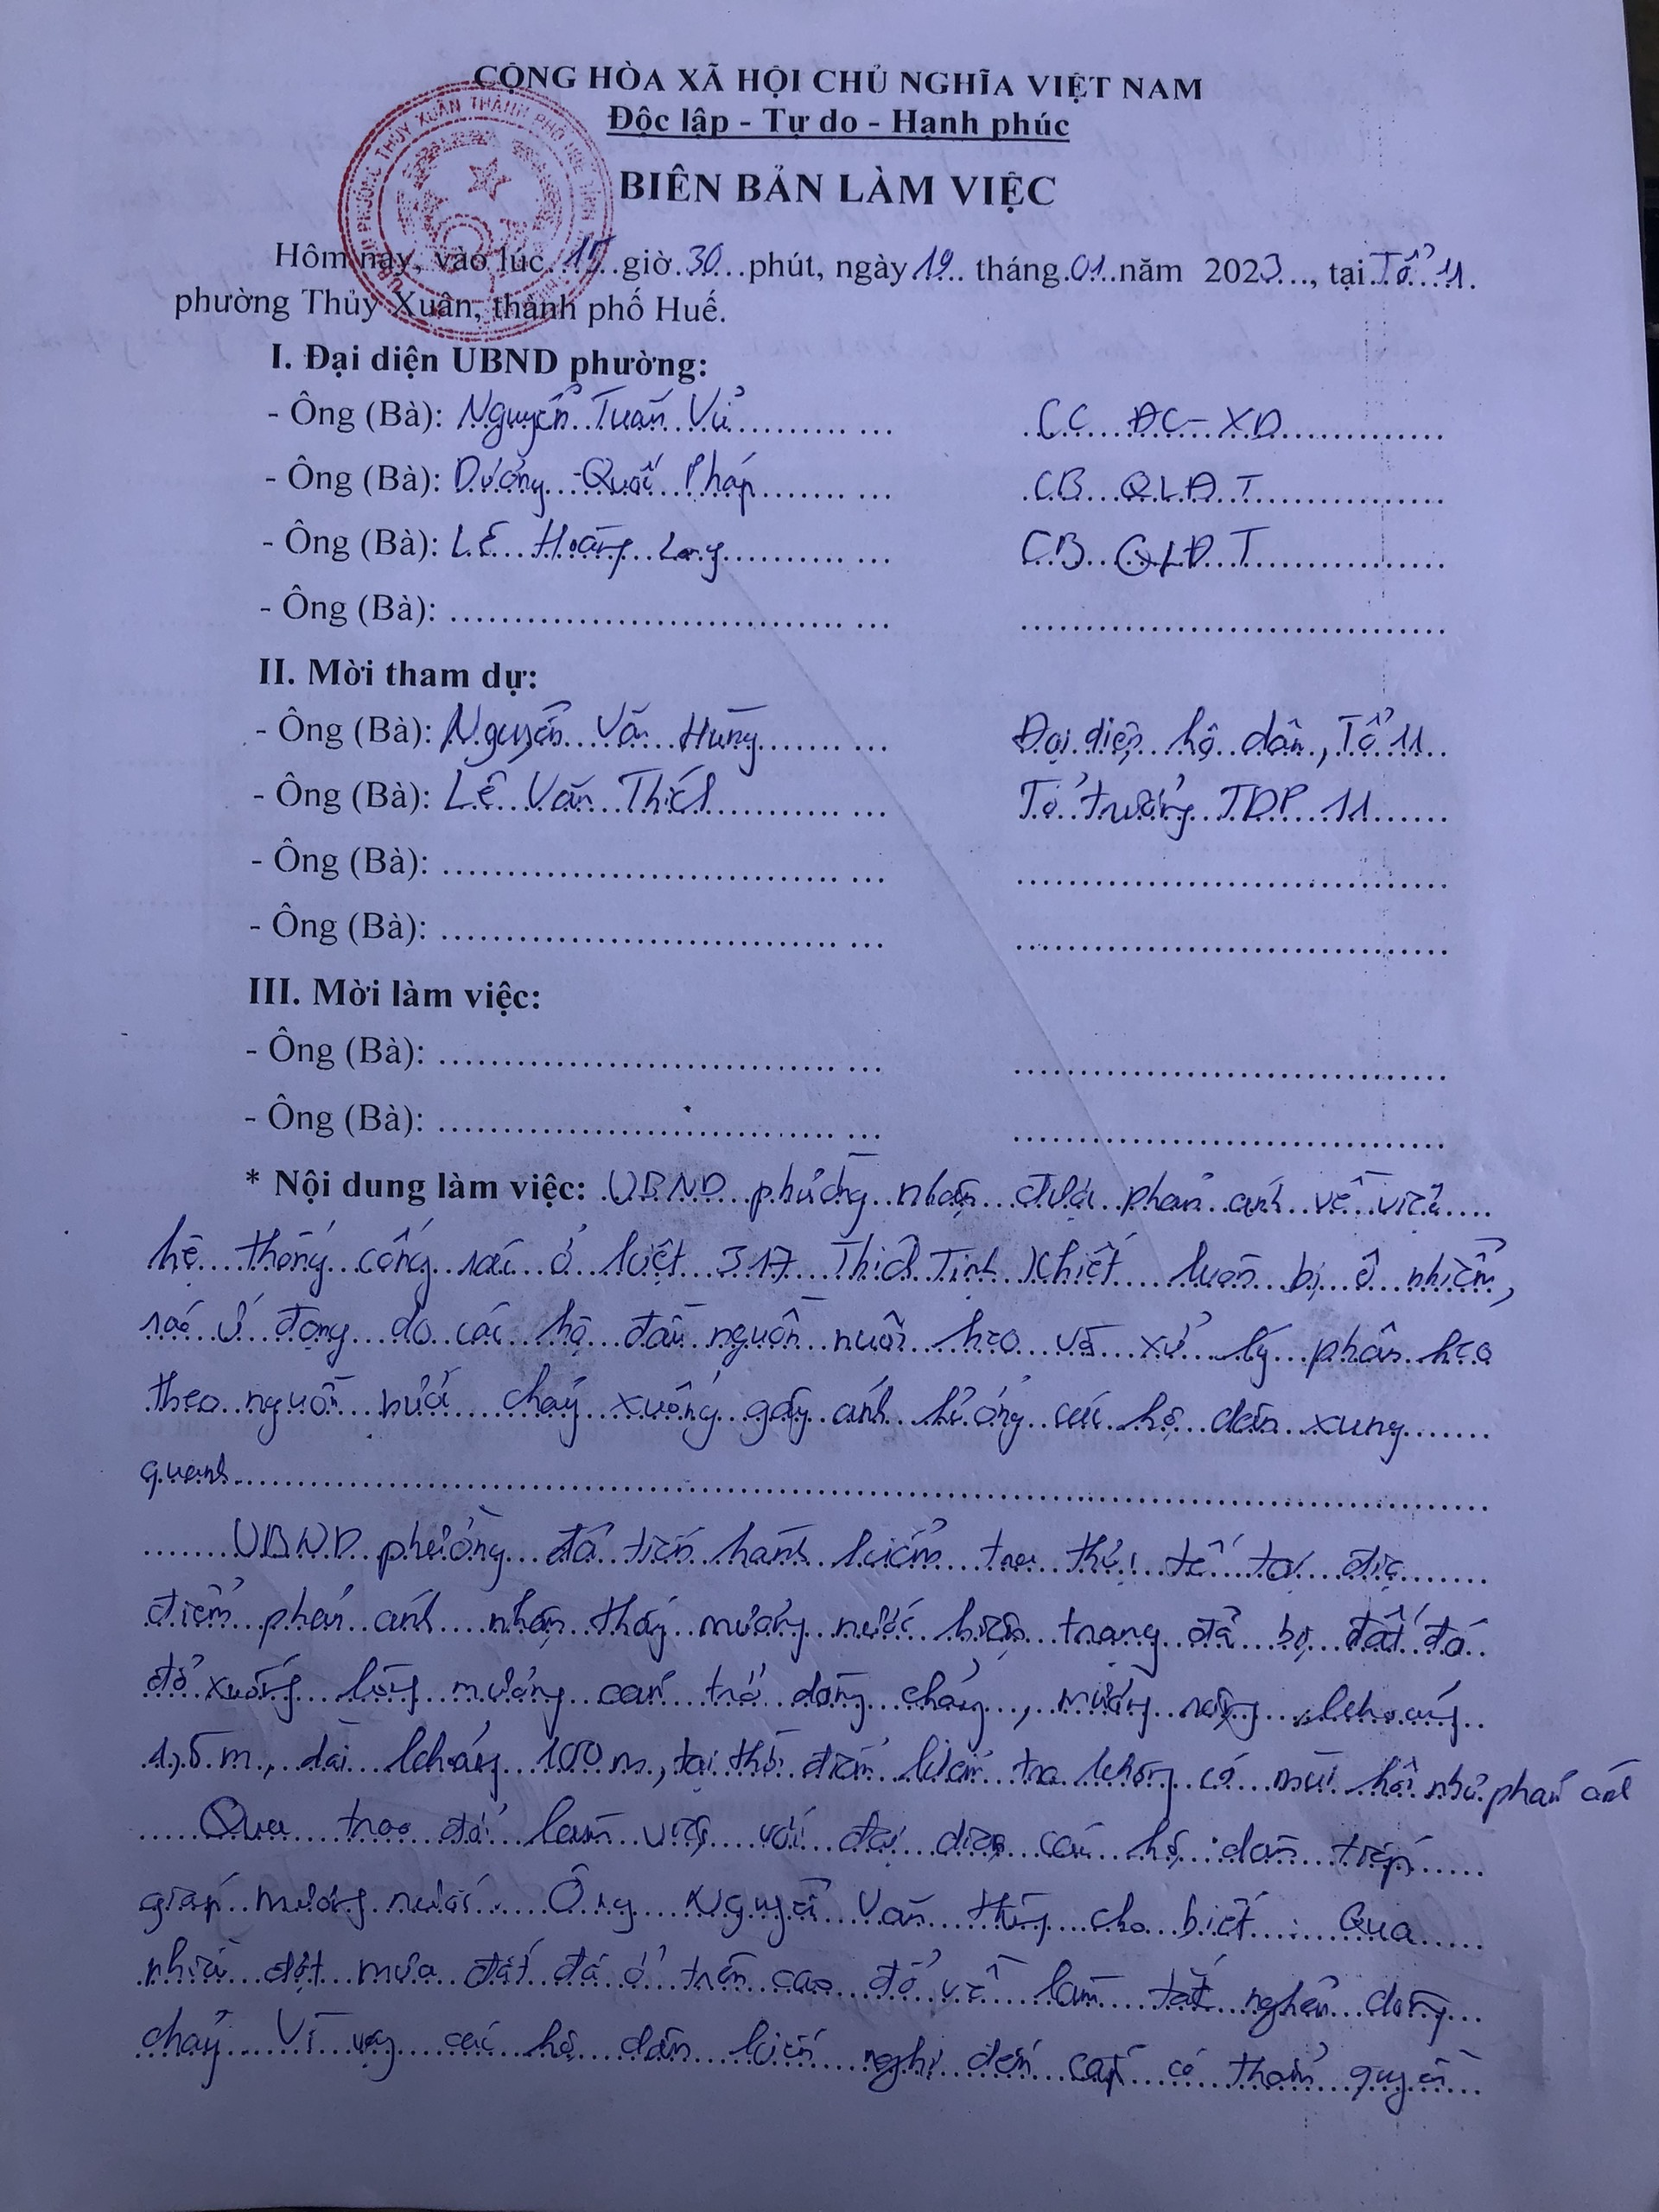 CỘNG HÒA XÃ HỘI CHỦ NGHĨA VIỆT NAM
Độc lập - Tự do - Hạnh phúc
BIÊN BẢN LÀM VIỆC
Hôm nay, vào lúc 15 giờ 30 phút, ngày 19 tháng 01 năm 2023, tại Tổ 11
phường Thủy Xuân, thành phố Huế.
I. Đại diện UBND phường:
- Ông (Bà): Nguyễn Tuấn Vũ CC ĐC-XD
- Ông (Bà): Dương Quốc Pháp CB QLĐT
- Ông (Bà): Lê Hoàng Long CB QLĐT
- Ông (Bà):
II. Mời tham dự:
- Ông (Bà): Nguyễn Văn Hùng Đại diện hộ dân, Tổ 11
- Ông (Bà): Lê Văn Thích Tổ trưởng TDP 11
- Ông (Bà):
- Ông (Bà):
III. Mời làm việc:
- Ông (Bà):
- Ông (Bà):
* Nội dung làm việc: UBND phường nhận được phản ánh về việc
hệ thống cống rác ở kiệt 317 Thích Tịnh Khiết luôn bị ô nhiễm,
rác ứ đọng do các hộ đầu nguồn nuôi heo và xử lý phân heo
theo nguồn nước chảy xuống gây ảnh hưởng các hộ dân xung
quanh
UBND phường đã tiến hành kiểm tra thực tế tại địa
điểm phản ánh nhận thấy mương nước hiện trạng đã bị đất đá
đổ xuống lòng mương cản trở dòng chảy, mương rộng khoảng
1,5m, dài khoảng 100m, tại thời điểm kiểm tra không có mùi hôi như phản ánh
Qua trao đổi làm việc với đại diện các hộ dân tiếp
giáp mương nước. Ông Nguyễn Văn Hùng cho biết: Qua
nhiều đợt mưa đất đá ở trên cao đổ về làm tắt nghẽn dòng
chảy. Vì vậy các hộ dân kiến nghị đến cấp có thẩm quyền